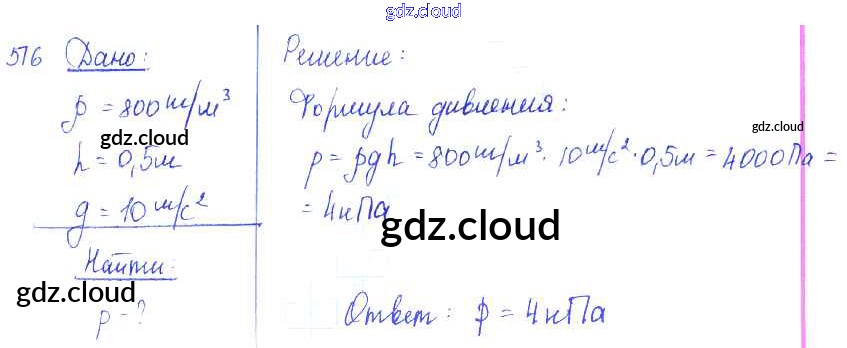 gdz.cloud
576 Дано:
ρ = 800 кг/м³
gdz.cloud
h = 0,5м
g = 10 м/с²
Найти:
gdz.cloud
p - ?
Решение:
Формула давления:
gdz.cloud
p = ρgh = 800 кг/м³ · 10 м/с² · 0,5м = 4000Па =
= 4кПа
gdz.cloud
Ответ: p = 4кПа